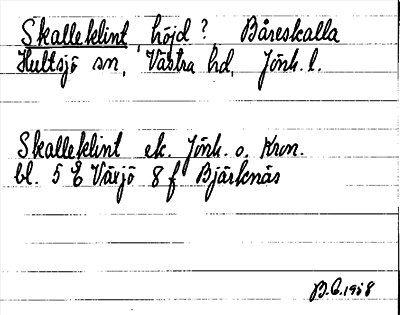 Skalleklint, höjd? Båreskalla
Hultsjö sn, Västra hd, Jönk. l.
Skalleklint ek. Jönk. o. Kron.
bl. 5 E Växjö 8 f Bjärknäs
B.C. 1958